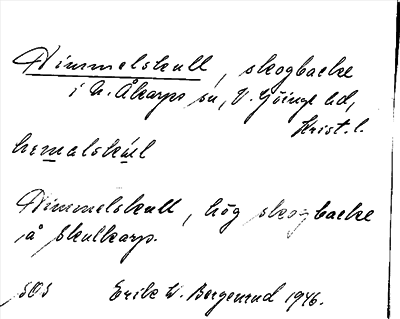 Himmelskull, skogbacke
i N. Åkarps sn, V. Göinge hd,
Krist. l.
hemalskul
Himmelskull, hög skogbacke
å Skulkarp.
SOS Erik W. Bergenrud 1946.